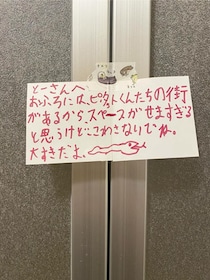 とーさんへ
おふろには、ピクットくんたちの街
があるから、スペースがせますぎる
と思うけど、こわさないでね。
大すきだよ、